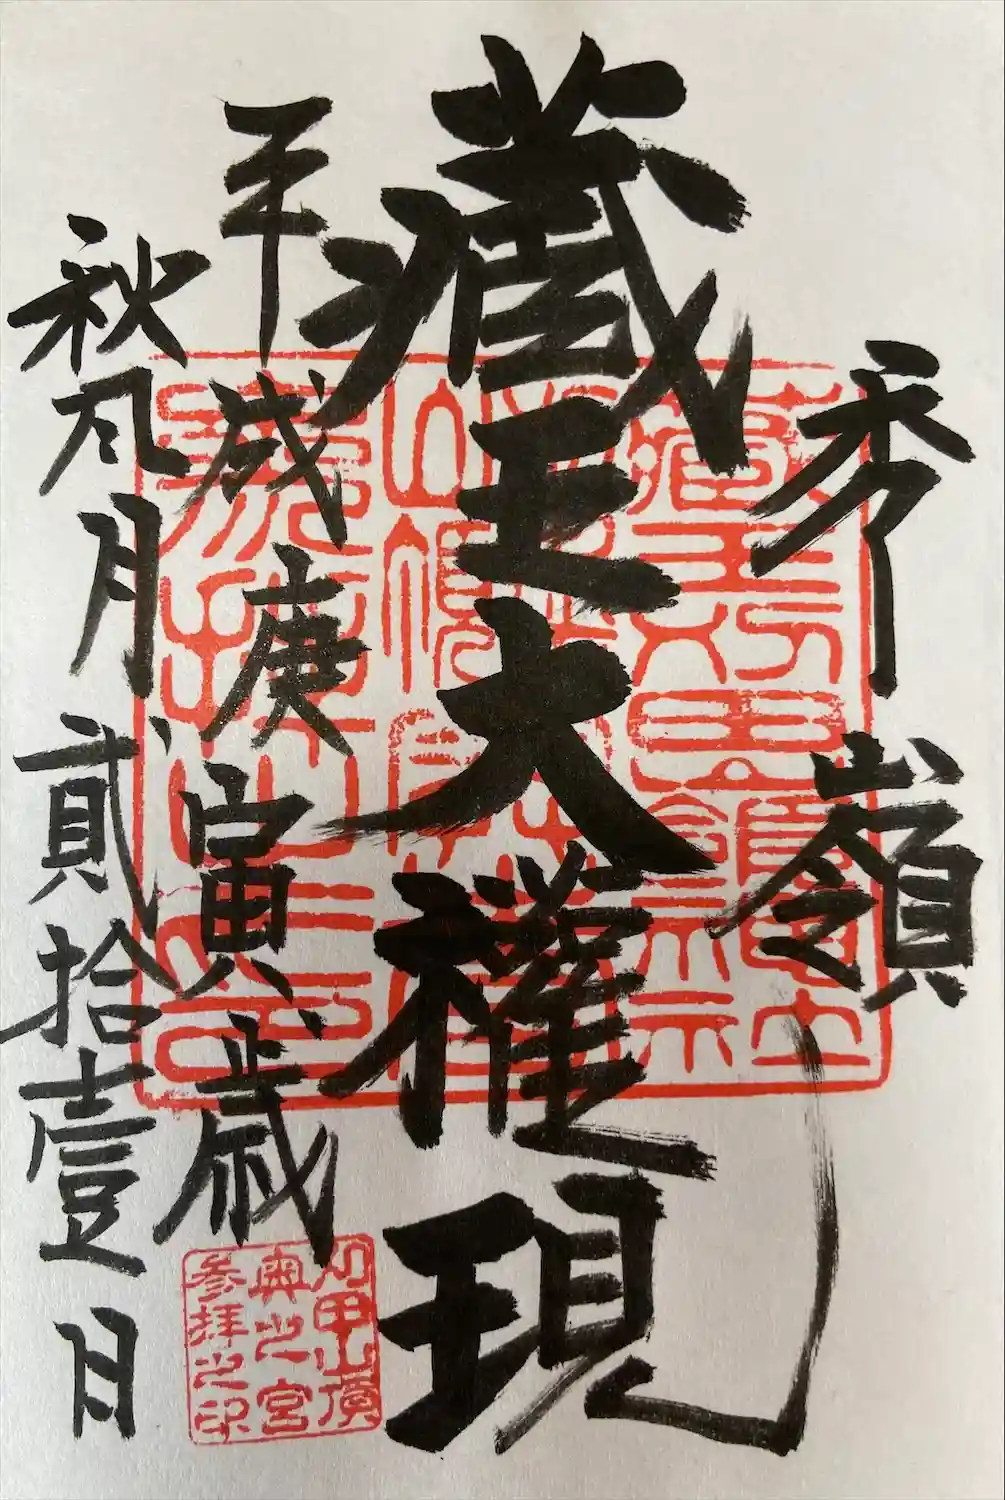 秀嶺
藏王大權現
平成庚寅歳
秋九月貳拾壹日
刈田山頂
奥之宮
参拝之印